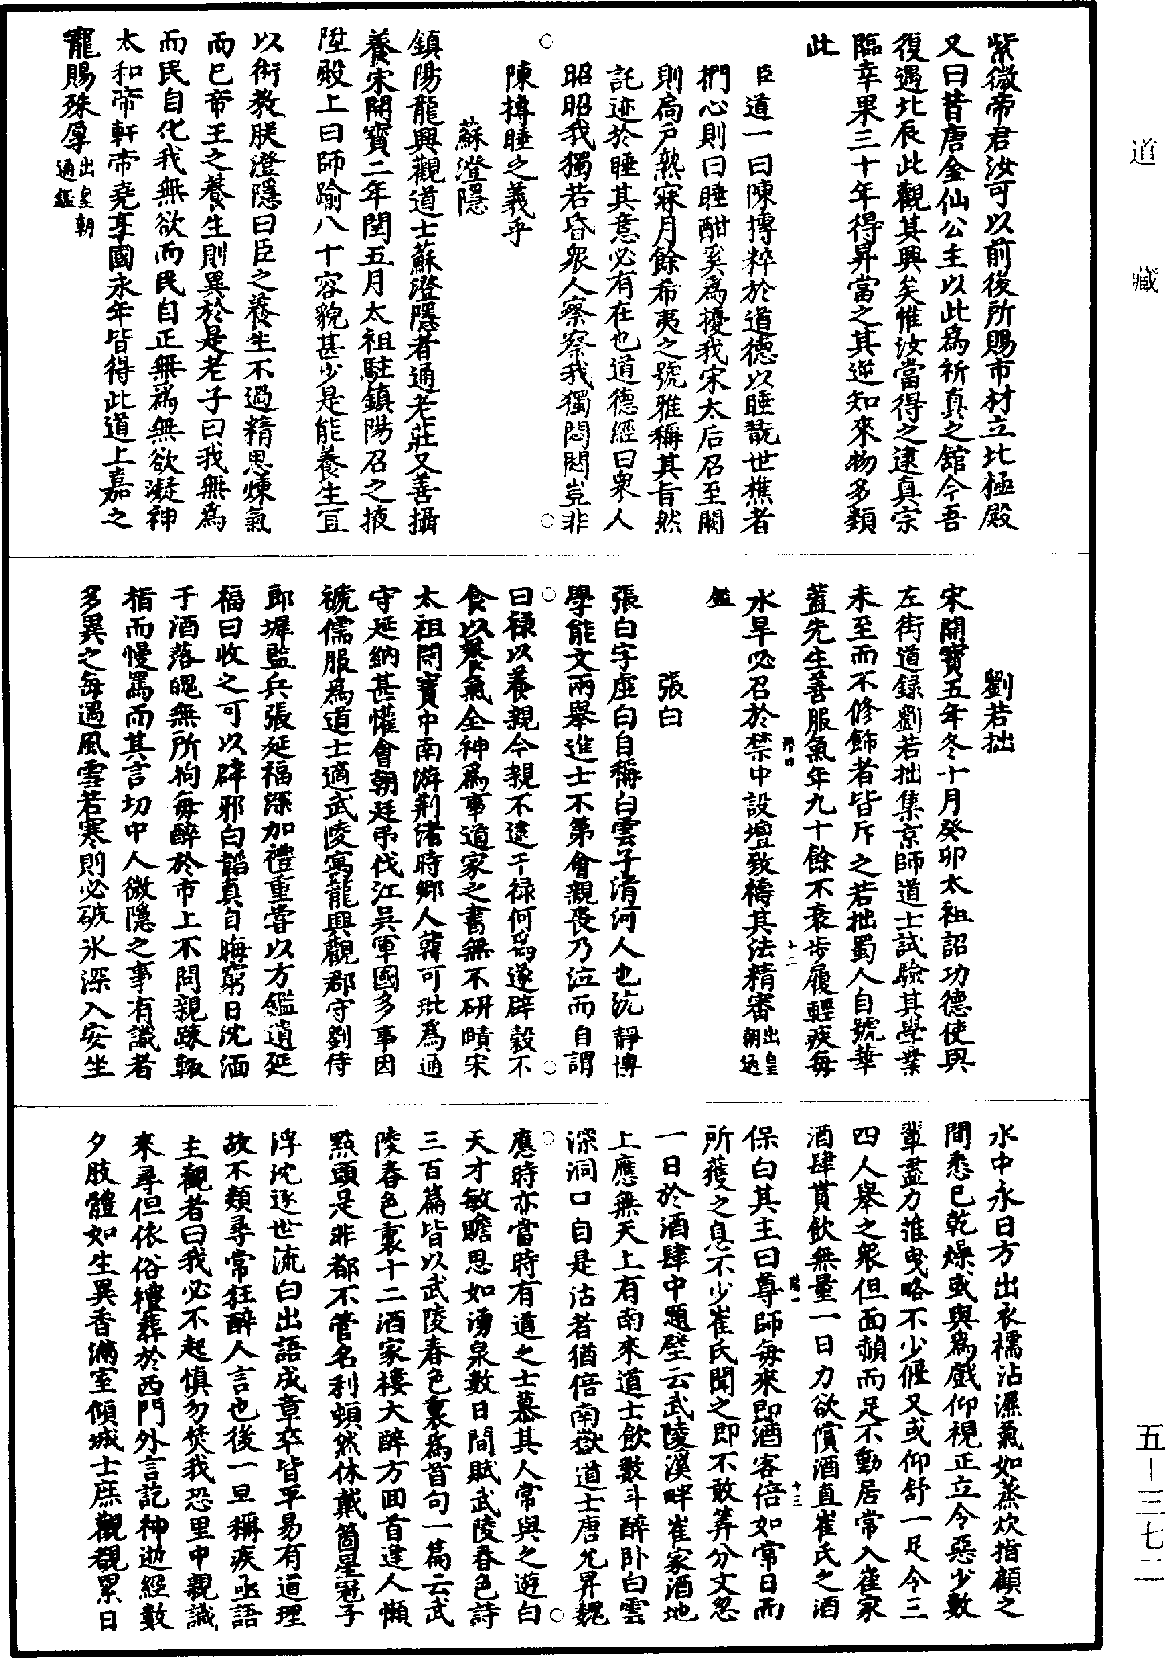 道藏
紫微帝君汝可以前後所賜市材立北極殿
又曰昔唐金仙公主以此為祈真之舘今吾
復遇北辰此觀其興矣惟汝當得之逮真宗
臨幸果三十年得昇當之其逆知來物多類
此
臣道一曰陳摶粹於道德以睡翫世樵者
捫心則曰睡酣奚為擾我宋太后召至闕
則扃戶熟寐月餘希夷之號雅稱其旨然
託迹於睡其意必有在也道德經曰衆人
昭昭我獨若昏衆人察察我獨悶悶豈非
陳摶睡之義乎
蘇澄隱
鎮陽龍興觀道士蘇澄隱者通老莊又善攝
養宋開寶二年閏五月太祖駐鎮陽召之掖
陞殿上曰師踰八十容貌甚少是能養生宜
以術教朕澄隱曰臣之養生不過精思煉氣
而已帝王之養生則異於是老子曰我無為
而民自化我無欲而民自正無為無欲凝神
太和帝軒帝堯享國永年皆得此道上嘉之
寵賜殊厚出皇朝通鑑
劉若拙
宋開寶五年冬十月癸卯太祖詔功德使與
左街道録劉若拙集京師道士試驗其學業
未至而不修飾者皆斥之若拙蜀人自號華
蓋先生善服氣年九十餘不衰步履輕疾每
水旱必召於禁中設壇致禱其法精審出皇朝通
鑑
張白
張白字虛白自稱白雲子清河人也沈靜博
學能文兩舉進士不第會親喪乃泣而自謂
曰禄以養親今親不逮干禄何為遂辟穀不
食以養氣全神為事道家之書無不研賾宋
太祖開寶中南游荆渚時鄉人韓可玭為通
守延納甚懽會朝廷弔伐江吳軍國多事因
褫儒服為道士適武陵寓龍興觀郡守劉侍
郎墀監兵張延福深加禮重嘗以方鑑遺延
福曰收之可以辟邪白韜真自晦窮日沈湎
于酒落魄無所拘每醉於市上不問親踈輙
指而慢罵而其言切中人微隱之事有識者
多異之每遇風雪若寒則必破氷深入安坐
水中永日方出衣襦沾濕氣如蒸炊指顧之
間悉已乾燥或與為戲仰視正立令惡少數
輩盡力推曳略不少偃又或仰舒一足令三
四人舉之衆但面頳而足不動居常入崔家
酒肆貰飲無量一日力欲償酒直崔氏之酒
保白其主曰尊師每來即酒客倍如常日而
所獲之息不少崔氏聞之即不敢筭分文忽
一日於酒肆中題壁云武陵溪畔崔家酒地
上應無天上有南來道士飲數斗醉卧白雲
深洞口自是沽者猶倍南嶽道士唐允昇魏
應時亦當時有道之士慕其人常與之遊白
天才敏贍思如湧泉數日間賦武陵春色詩
三百篇皆以武陵春色裏為首句一篇云武
陵春色裏十二酒家樓大醉方回首逢人懶
㸃頭是非都不管名利頓然休戴箇星冠子
浮沈逐世流白出語成章卒皆平易有道理
故不類尋常狂醉人言也後一旦稱疾亟語
主觀者曰我必不起慎勿焚我恐里中親識
來尋但依俗禮葬於西門外言訖神逝經數
夕肢體如生異香滿室傾城士庶觀覩累日
五–三七二